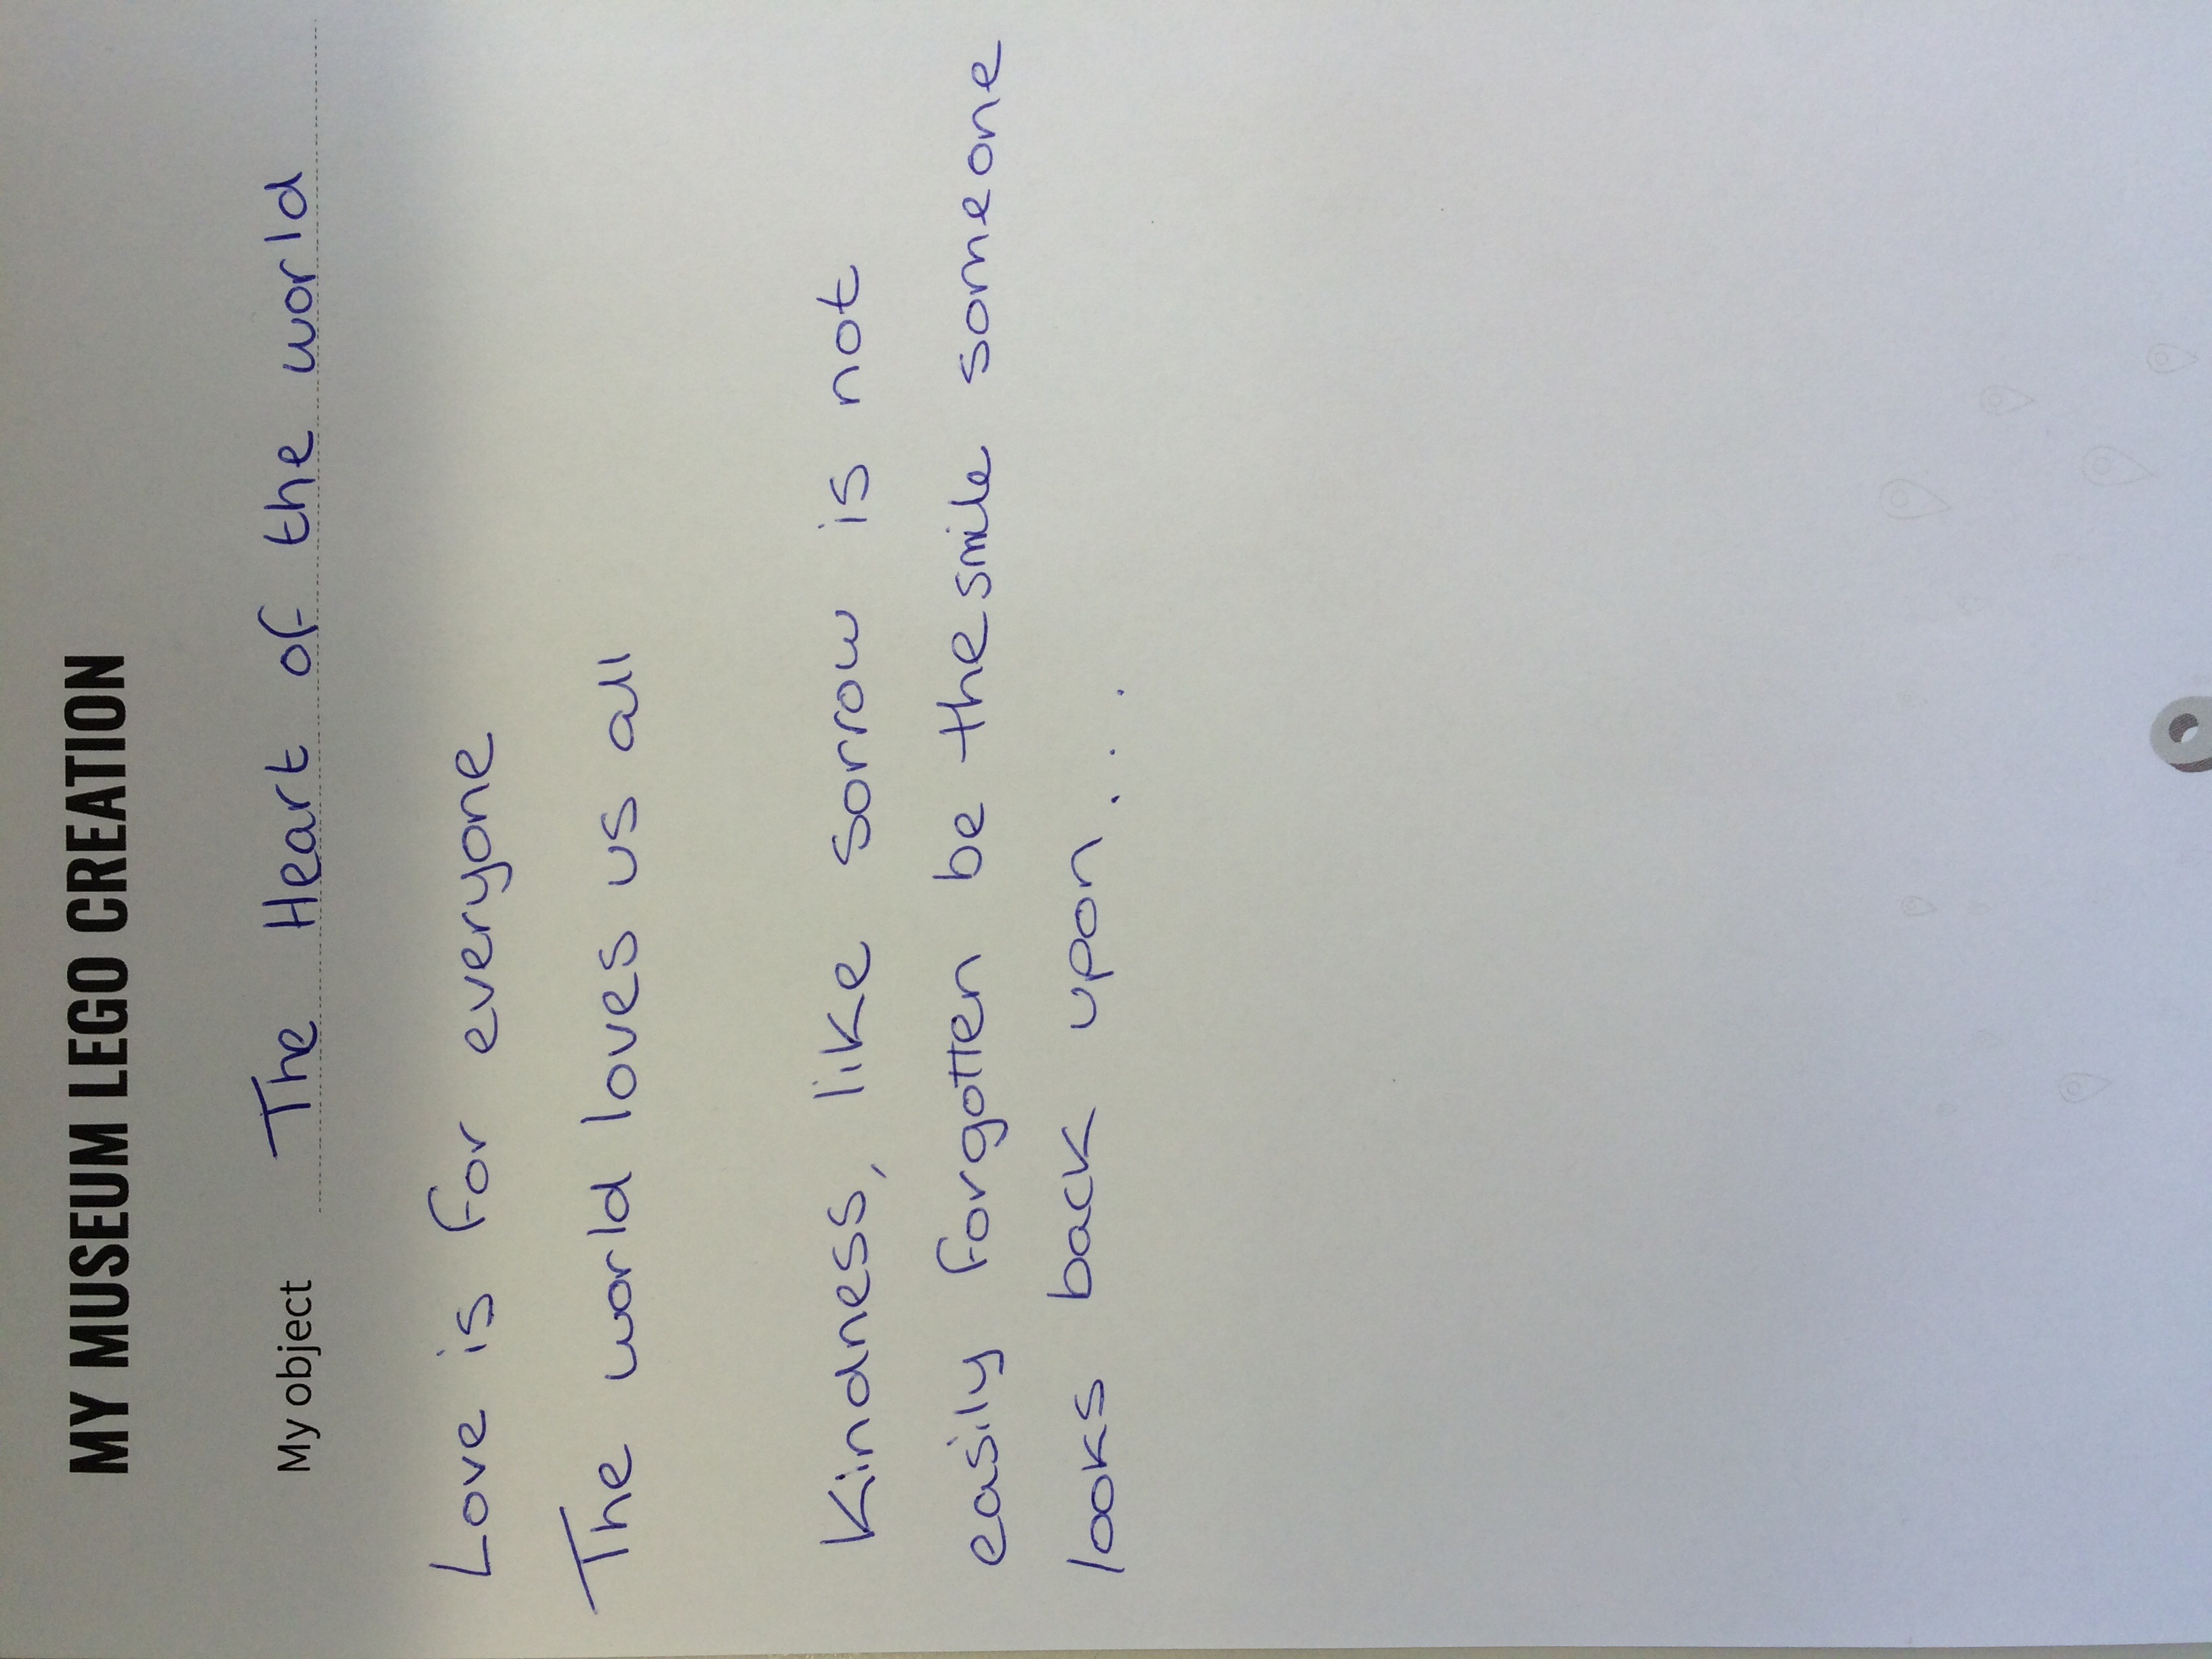 MY MUSEUM LEGO CREATION
My object The Heart of the world
Love is for everyone
The world loves us all
Kindness, like sorrow is not
easily forgotten be the smile someone
looks back upon...